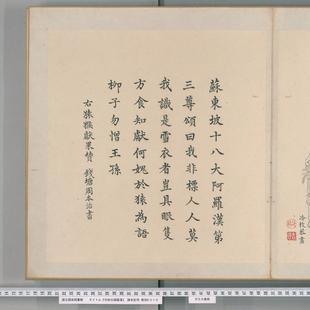 蘇東坡十八大阿羅漢第
三尊頌曰我非標人人莫
我識是雪衣者豈具眼隻
方食知獻何愧於猿為語
柳子勿憎王孫
右猿猴獻果賛 錢塘周本治書
冷枚恭畫